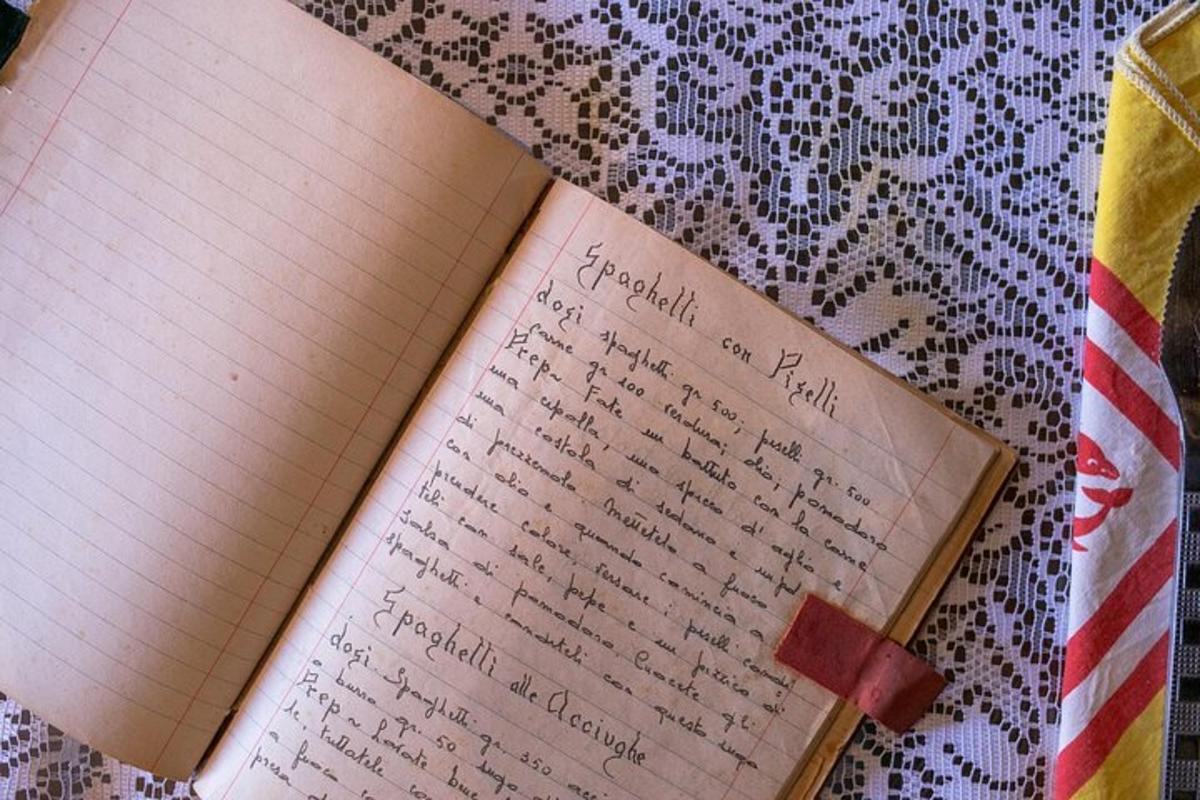 Spaghetti con Piselli
dosi spaghetti gr. 500; piselli gr. 500
carne gr. 100 verdura; olio; pomodoro
Prep~ Fate un battuto con la carne
una cipolla, uno spicco d'aglio e
una costola di sedano e un po'
di prezzemolo. Mettetelo a fuoco
con olio e quando comincia a
prendere colore, versare i piselli condi
teli con sale, pepe e un pizzico di
salsa di pomodoro. Cuocete gli
spaghetti e conditeli con questo sugo
Spaghetti alle Acciughe
dosi Spaghetti gr. 350 acci
burro gr. 50 sugo di
Prep~ Lavate bene
le, tuffatele
a fuoco
presa d